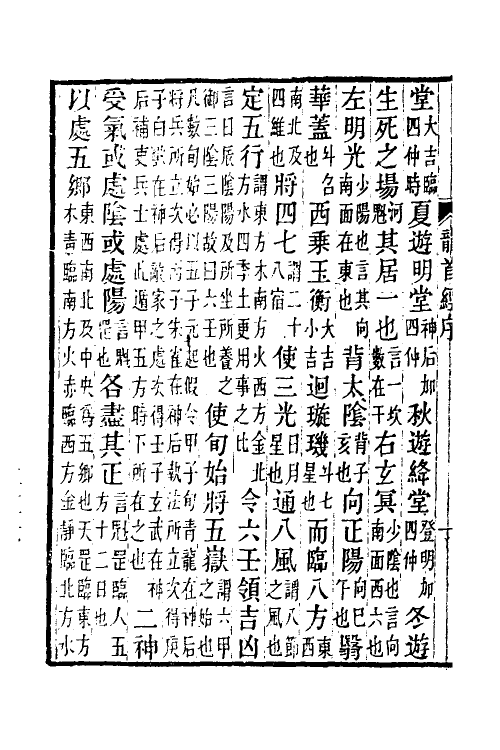 堂大吉臨四仲時夏遊明堂神后加四仲秋遊絳堂登明加四仲冬遊
生死之場河魁其居一也言一坎數在干右玄冥少陰也言向南面西六也
左明光少陽也言其向南面在東也背太陰背子亥也向正陽向巳午也翳
華蓋斗名也西乘玉衡大吉小吉迴璇璣斗七星也而臨八方東西
南北及四維也將四七謂二十八宿使三光日月星也通八風謂八節之風也
定五行謂東方木南方火西方金北方水四季土更用事之比令六壬領吉凶
言日辰陰陽及所坐所養之御三陰三陽故曰六壬也使旬始將五嶽謂六甲之始也
凡數旬始必以五子元起假令甲子旬青龍在神后將兵所立次得丙子朱雀在神后執法所立次得庚
子白獸在神后敵家之處次得壬子玄武在神后補吏兵士處此遁甲五方時下所在之也二神
受氣或處陰或處陽言魁罡也各盡其正言魁罡臨人五方十二日也
以處五鄉東西南北及中央爲五鄉也天罡臨東方木青臨南方火赤臨西方金靜臨北方水
龍首經序